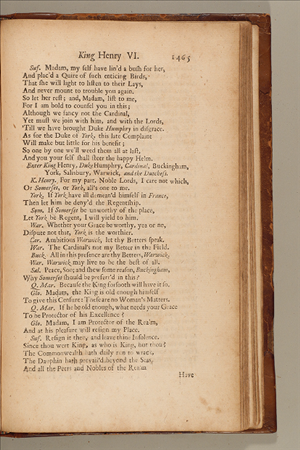 King Henry VI. 1465
Suf. Madam, my self have lin'd a bush for her,
And plac'd a Quire of such enticing Birds,
That she will light to listen to their Lays,
And never mount to trouble you again.
So let her rest; and, Madam, list to me,
For I am bold to counsel you in this;
Although we fancy not the Cardinal,
Yet must we join with him, and with the Lords,
'Till we have brought Duke Humphry in disgrace.
As for the Duke of York, this late Complaint
Will make but little for his benefit;
So one by one we'll weed them all at last,
And you your self shall steer the happy Helm.
Enter King Henry, Duke Humphry, Cardinal, Buckingham,
York, Salisbury, Warwick, and the Dutchess.
K. Henry. For my part, Noble Lords, I care not which,
Or Somerset, or York, all's one to me.
York. If York have ill demean'd himself in France,
Then let him be deny'd the Regentship.
Som. If Somerset be unworthy of the place,
Let York be Regent, I will yield to him.
War. Whether your Grace be worthy, yea or no,
Dispute not that, York is the worthier.
Car. Ambitious Warwick, let thy Betters speak.
War. The Cardinal's not my Better in the Field.
Buck. All in this presence are thy Betters, Warwick.
War. Warwick may live to be the best of all.
Sal. Peace, Son; and shew some reason, Buckingham,
Why Somerset should be preferr'd in this?
Q. Mar. Because the King forsooth will have it so.
Glo. Madam, the King is old enough himself
To give this Censure: These are no Woman's Matters.
Q. Mar. If he be old enough, what needs your Grace
To be Protector of his Excellence?
Glo. Madam, I am Protector of the Realm,
And at his pleasure will resign my Place.
Suf. Resign it then, and leave thine Insolence.
Since thou wert King, as who is King, but thou?
The Commonwealth hath daily run to wrack,
The Dauphin hath prevail'd beyond the Seas,
And all the Peers and Nobles of the Realm
Have